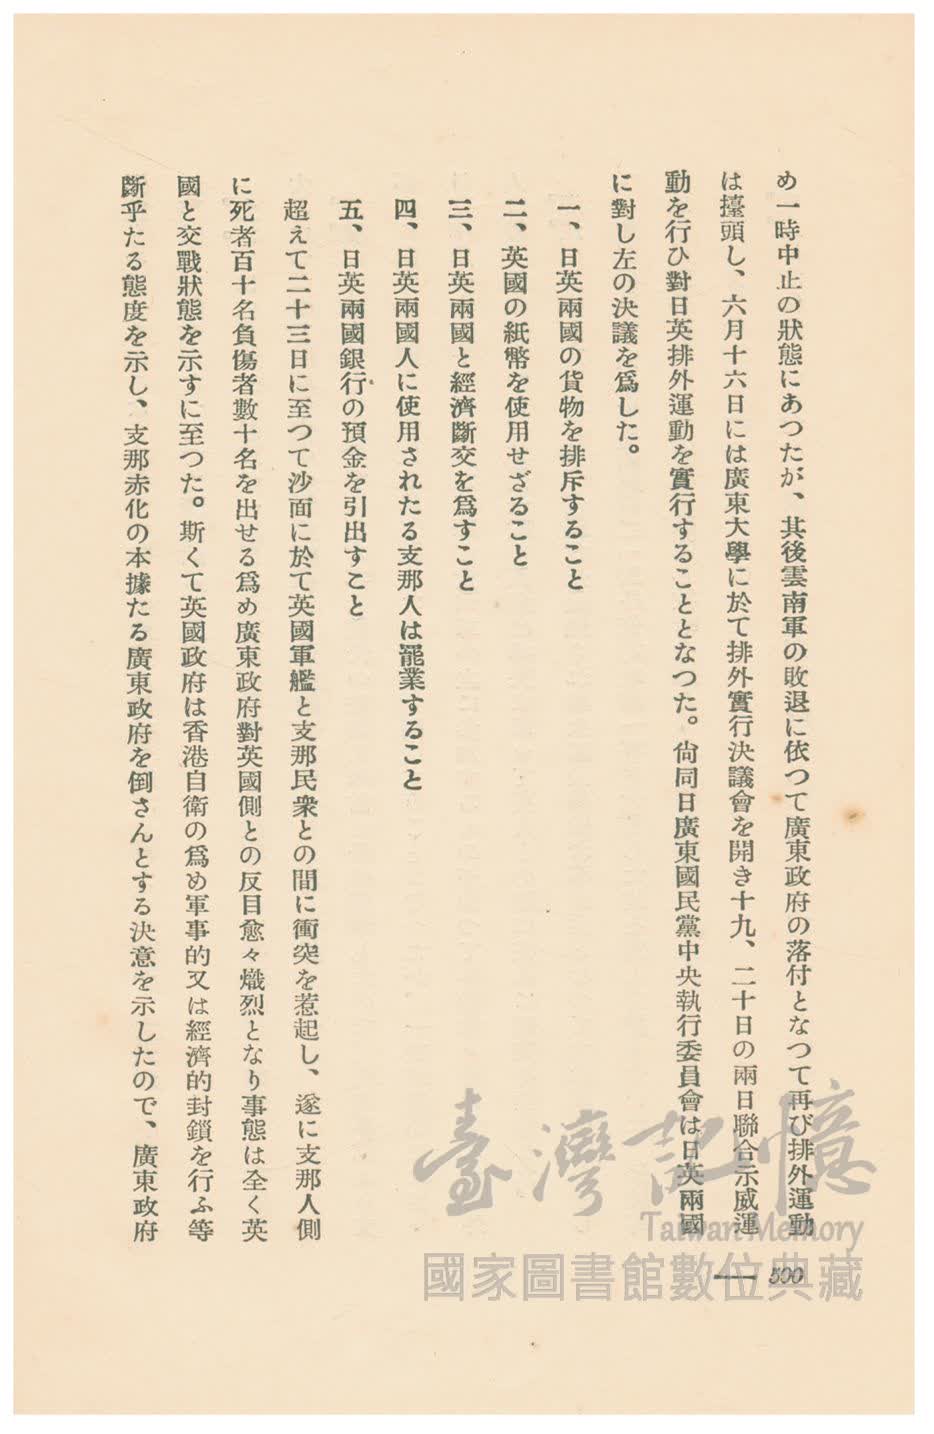 め一時中止の狀態にあつたが、其後雲南軍の敗退に依つて廣東政府の落付となつて再び排外運動
は擡頭し、六月十六日には廣東大學に於て排外實行決議會を開き十九、二十日の兩日聯合示威運
動を行ひ對日英排外運動を實行することとなつた。尙同日廣東國民黨中央執行委員會は日英兩國
に對し左の決議を爲した。
一、日英兩國の貨物を排斥すること
二、英國の紙幣を使用せざること
三、日英兩國と經濟斷交を爲すこと
四、日英兩國人に使用されたる支那人は罷業すること
五、日英兩國銀行の預金を引出すこと
超えて二十三日に至つて沙面に於て英國軍艦と支那民衆との間に衝突を惹起し、遂に支那人側
に死者百十名負傷者數十名を出せる爲め廣東政府對英國側との反目愈々熾烈となり事態は全く英
國と交戰狀態を示すに至つた。斯くて英國政府は香港自衛の爲め軍事的又は經濟的封鎖を行ふ等
斷乎たる態度を示し、支那赤化の本據たる廣東政府を倒さんとする決意を示したので、廣東政府
— 500
臺灣記憶
Taiwan Memory
國家圖書館數位典藏